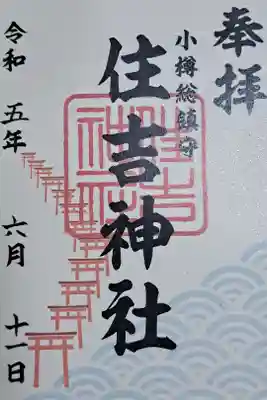 奉拝
小樽総鎮守
住吉神社
令和 五年 六月 十一日